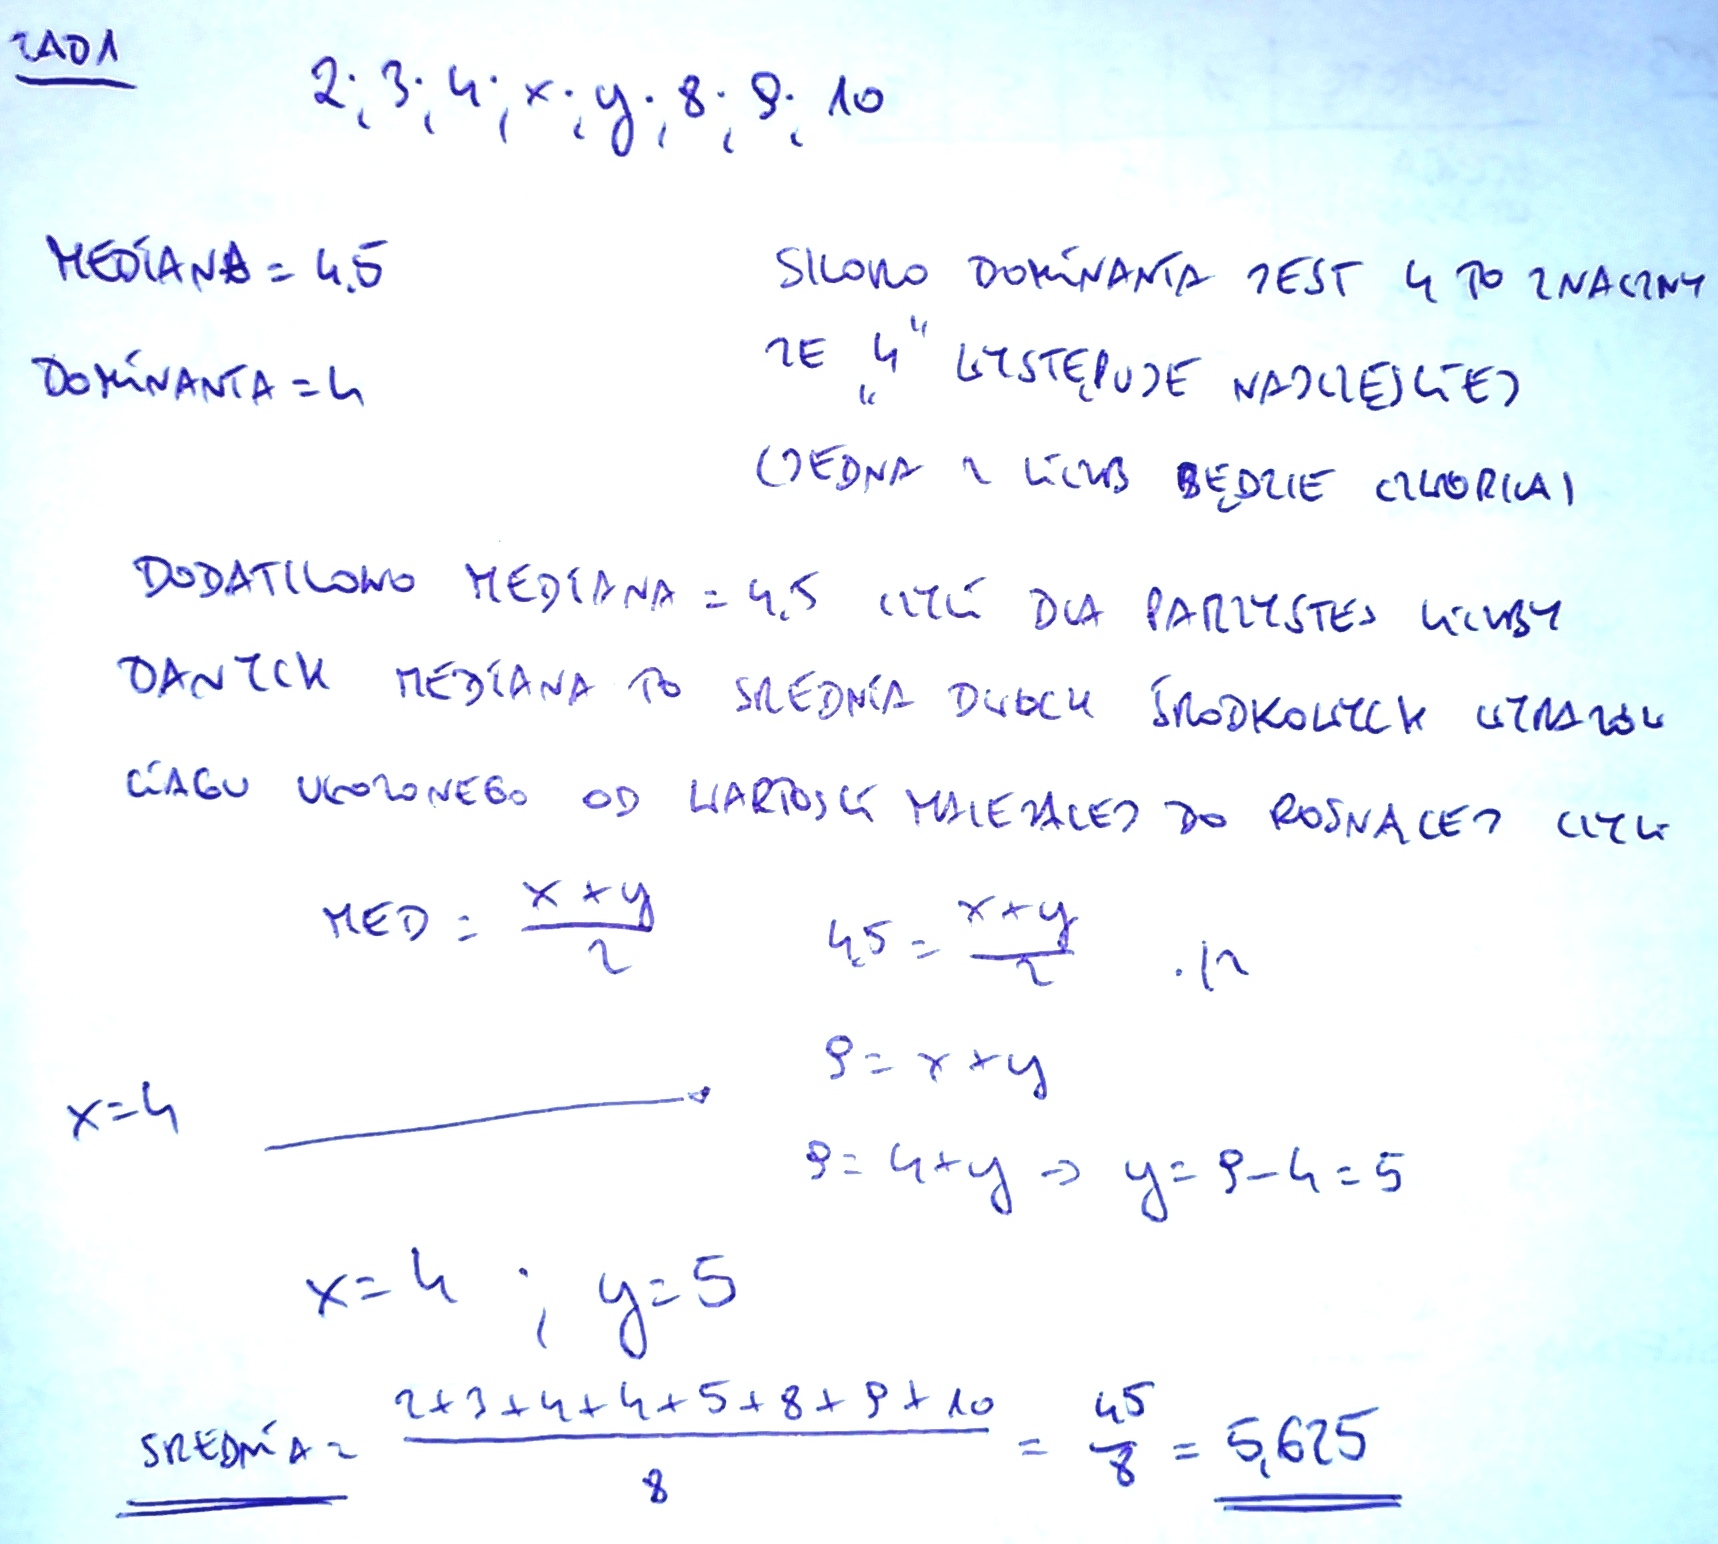 ZAD1
2; 3; 4; x; y; 8; 9; 10
MEDIANA = 4,5
DOMINANTA = 4
SKORO DOMINANTA JEST 4 TO ZNACZNY
ZE „4" WYSTĘPUJE NAJCZĘŚCIEJ
(JEDNA Z LICZB BĘDZIE CZWORKA)
DODATKOWO MEDIANA = 4,5 CZYLI DLA PARZYSTEJ LICZBY
DANYCH MEDIANA TO SREDNIA DWOCH ŚRODKOWYCH WYRAZOW
CIAGU UŁOZONEGO OD WARTOSCI MALEJACEJ DO ROSNACEJ CZYLI
MED = \frac{x+y}{2} 4,5 = \frac{x+y}{2} ·/2
9 = x+y
x=4
9 = 4+y → y = 9-4 = 5
x=4 ; y=5
SREDNIA = \frac{2+3+4+4+5+8+9+10}{8} = \frac{45}{8} = 5,625